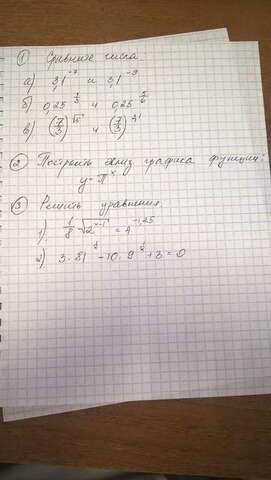 ① Сравните числа:
а) 3,1⁻⁷ и 3,1⁻⁹
б) 0,25^(1/3) и 0,25^(5/6)
в) (7/3) и (7/3)
② Построить эскиз графика функции:
y = π^x
③ Решить уравнения.
1) 1/8 √2^(x-1) = 4^(-1,25)
2) 3·81 -10·9 +3=0